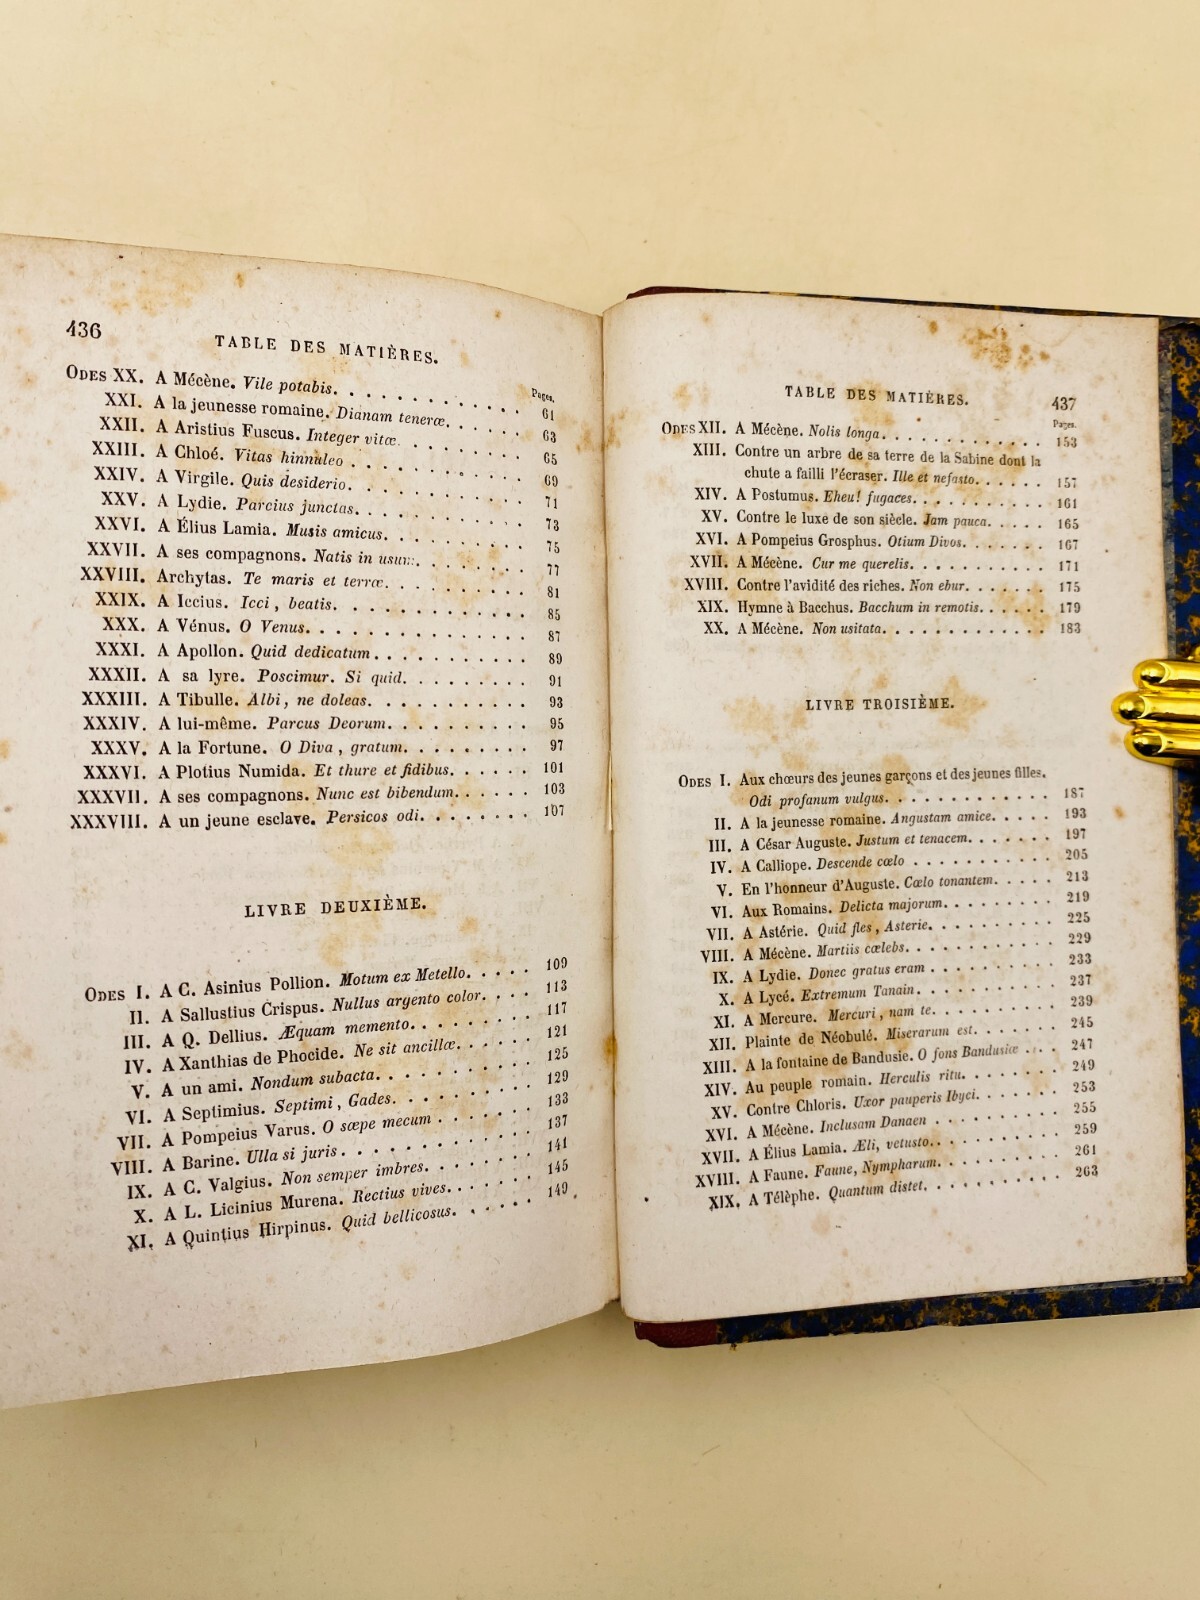 436
TABLE DES MATIÈRES.
Pages.
ODES XX. A Mécène. Vile potabis. . . . . . . . . . . . . 61
XXI. A la jeunesse romaine. Dianam teneræ. . . . . . . 63
XXII. A Aristius Fuscus. Integer vitæ. . . . . . . . . 65
XXIII. A Chloé. Vitas hinnuleo . . . . . . . . . . . . 69
XXIV. A Virgile. Quis desiderio. . . . . . . . . . . . 71
XXV. A Lydie. Parcius junctas. . . . . . . . . . . . 73
XXVI. A Élius Lamia. Musis amicus. . . . . . . . . . 75
XXVII. A ses compagnons. Natis in usum. . . . . . . . 77
XXVIII. Archytas. Te maris et terræ. . . . . . . . . . 81
XXIX. A Iccius. Icci, beatis. . . . . . . . . . . . . 85
XXX. A Vénus. O Venus. . . . . . . . . . . . . . . 87
XXXI. A Apollon. Quid dedicatum. . . . . . . . . . . 89
XXXII. A sa lyre. Poscimur. Si quid. . . . . . . . . 91
XXXIII. A Tibulle. Albi, ne doleas. . . . . . . . . . 93
XXXIV. A lui-même. Parcus Deorum. . . . . . . . . . 95
XXXV. A la Fortune. O Diva, gratum. . . . . . . . . 97
XXXVI. A Plotius Numida. Et thure et fidibus. . . . . . 101
XXXVII. A ses compagnons. Nunc est bibendum. . . . . . 103
XXXVIII. A un jeune esclave. Persicos odi. . . . . . . . 107
LIVRE DEUXIÈME.
ODES I. A C. Asinius Pollion. Motum ex Metello. . . . . 109
II. A Sallustius Crispus. Nullus argento color. . . . 113
III. A Q. Dellius. Æquam memento. . . . . . . . . 117
IV. A Xanthias de Phocide. Ne sit ancillæ. . . . . . 121
V. A un ami. Nondum subacta. . . . . . . . . . . 125
VI. A Septimius. Septimi, Gades. . . . . . . . . . 129
VII. A Pompeius Varus. O sæpe mecum . . . . . . . 133
VIII. A Barine. Ulla si juris. . . . . . . . . . . . 137
IX. A C. Valgius. Non semper imbres. . . . . . . . 141
X. A L. Licinius Murena. Rectius vives. . . . . . . 145
XI. A Quintius Hirpinus. Quid bellicosus. . . . . . 149
TABLE DES MATIÈRES.
437
Pages.
ODES XII. A Mécène. Nolis longa. . . . . . . . . . . . . 153
XIII. Contre un arbre de sa terre de la Sabine dont la
chute a failli l'écraser. Ille et nefasto. . . . . . 157
XIV. A Postumus. Eheu! fugaces. . . . . . . . . . . 161
XV. Contre le luxe de son siècle. Jam pauca. . . . . 165
XVI. A Pompeius Grosphus. Otium Divos. . . . . . . 167
XVII. A Mécène. Cur me querelis. . . . . . . . . . . 171
XVIII. Contre l'avidité des riches. Non ebur. . . . . . . 175
XIX. Hymne à Bacchus. Bacchum in remotis. . . . . . 179
XX. A Mécène. Non usitata. . . . . . . . . . . . . 183
LIVRE TROISIÈME.
ODES I. Aux chœurs des jeunes garçons et des jeunes filles.
Odi profanum vulgus. . . . . . . . . . . . . 187
II. A la jeunesse romaine. Angustam amice. . . . . 193
III. A César Auguste. Justum et tenacem. . . . . . . 197
IV. A Calliope. Descende cœlo . . . . . . . . . . . 205
V. En l'honneur d'Auguste. Cœlo tonantem. . . . . 213
VI. Aux Romains. Delicta majorum. . . . . . . . . 219
VII. A Astérie. Quid fles, Asterie. . . . . . . . . . 225
VIII. A Mécène. Martiis cœlebs. . . . . . . . . . . . 229
IX. A Lydie. Donec gratus eram . . . . . . . . . . 233
X. A Lycé. Extremum Tanain. . . . . . . . . . . 237
XI. A Mercure. Mercuri, nam te. . . . . . . . . . 239
XII. Plainte de Néobulé. Miserarum est. . . . . . . 245
XIII. A la fontaine de Bandusie. O fons Bandusiæ . . . 247
XIV. Au peuple romain. Herculis ritu. . . . . . . . 249
XV. Contre Chloris. Uxor pauperis Ibyci. . . . . . . 253
XVI. A Mécène. Inclusam Danaen . . . . . . . . . . 255
XVII. A Élius Lamia. Æli, vetusto. . . . . . . . . . . 259
XVIII. A Faune. Faune, Nympharum. . . . . . . . . . 261
XIX. A Télèphe. Quantum distet. . . . . . . . . . . 263